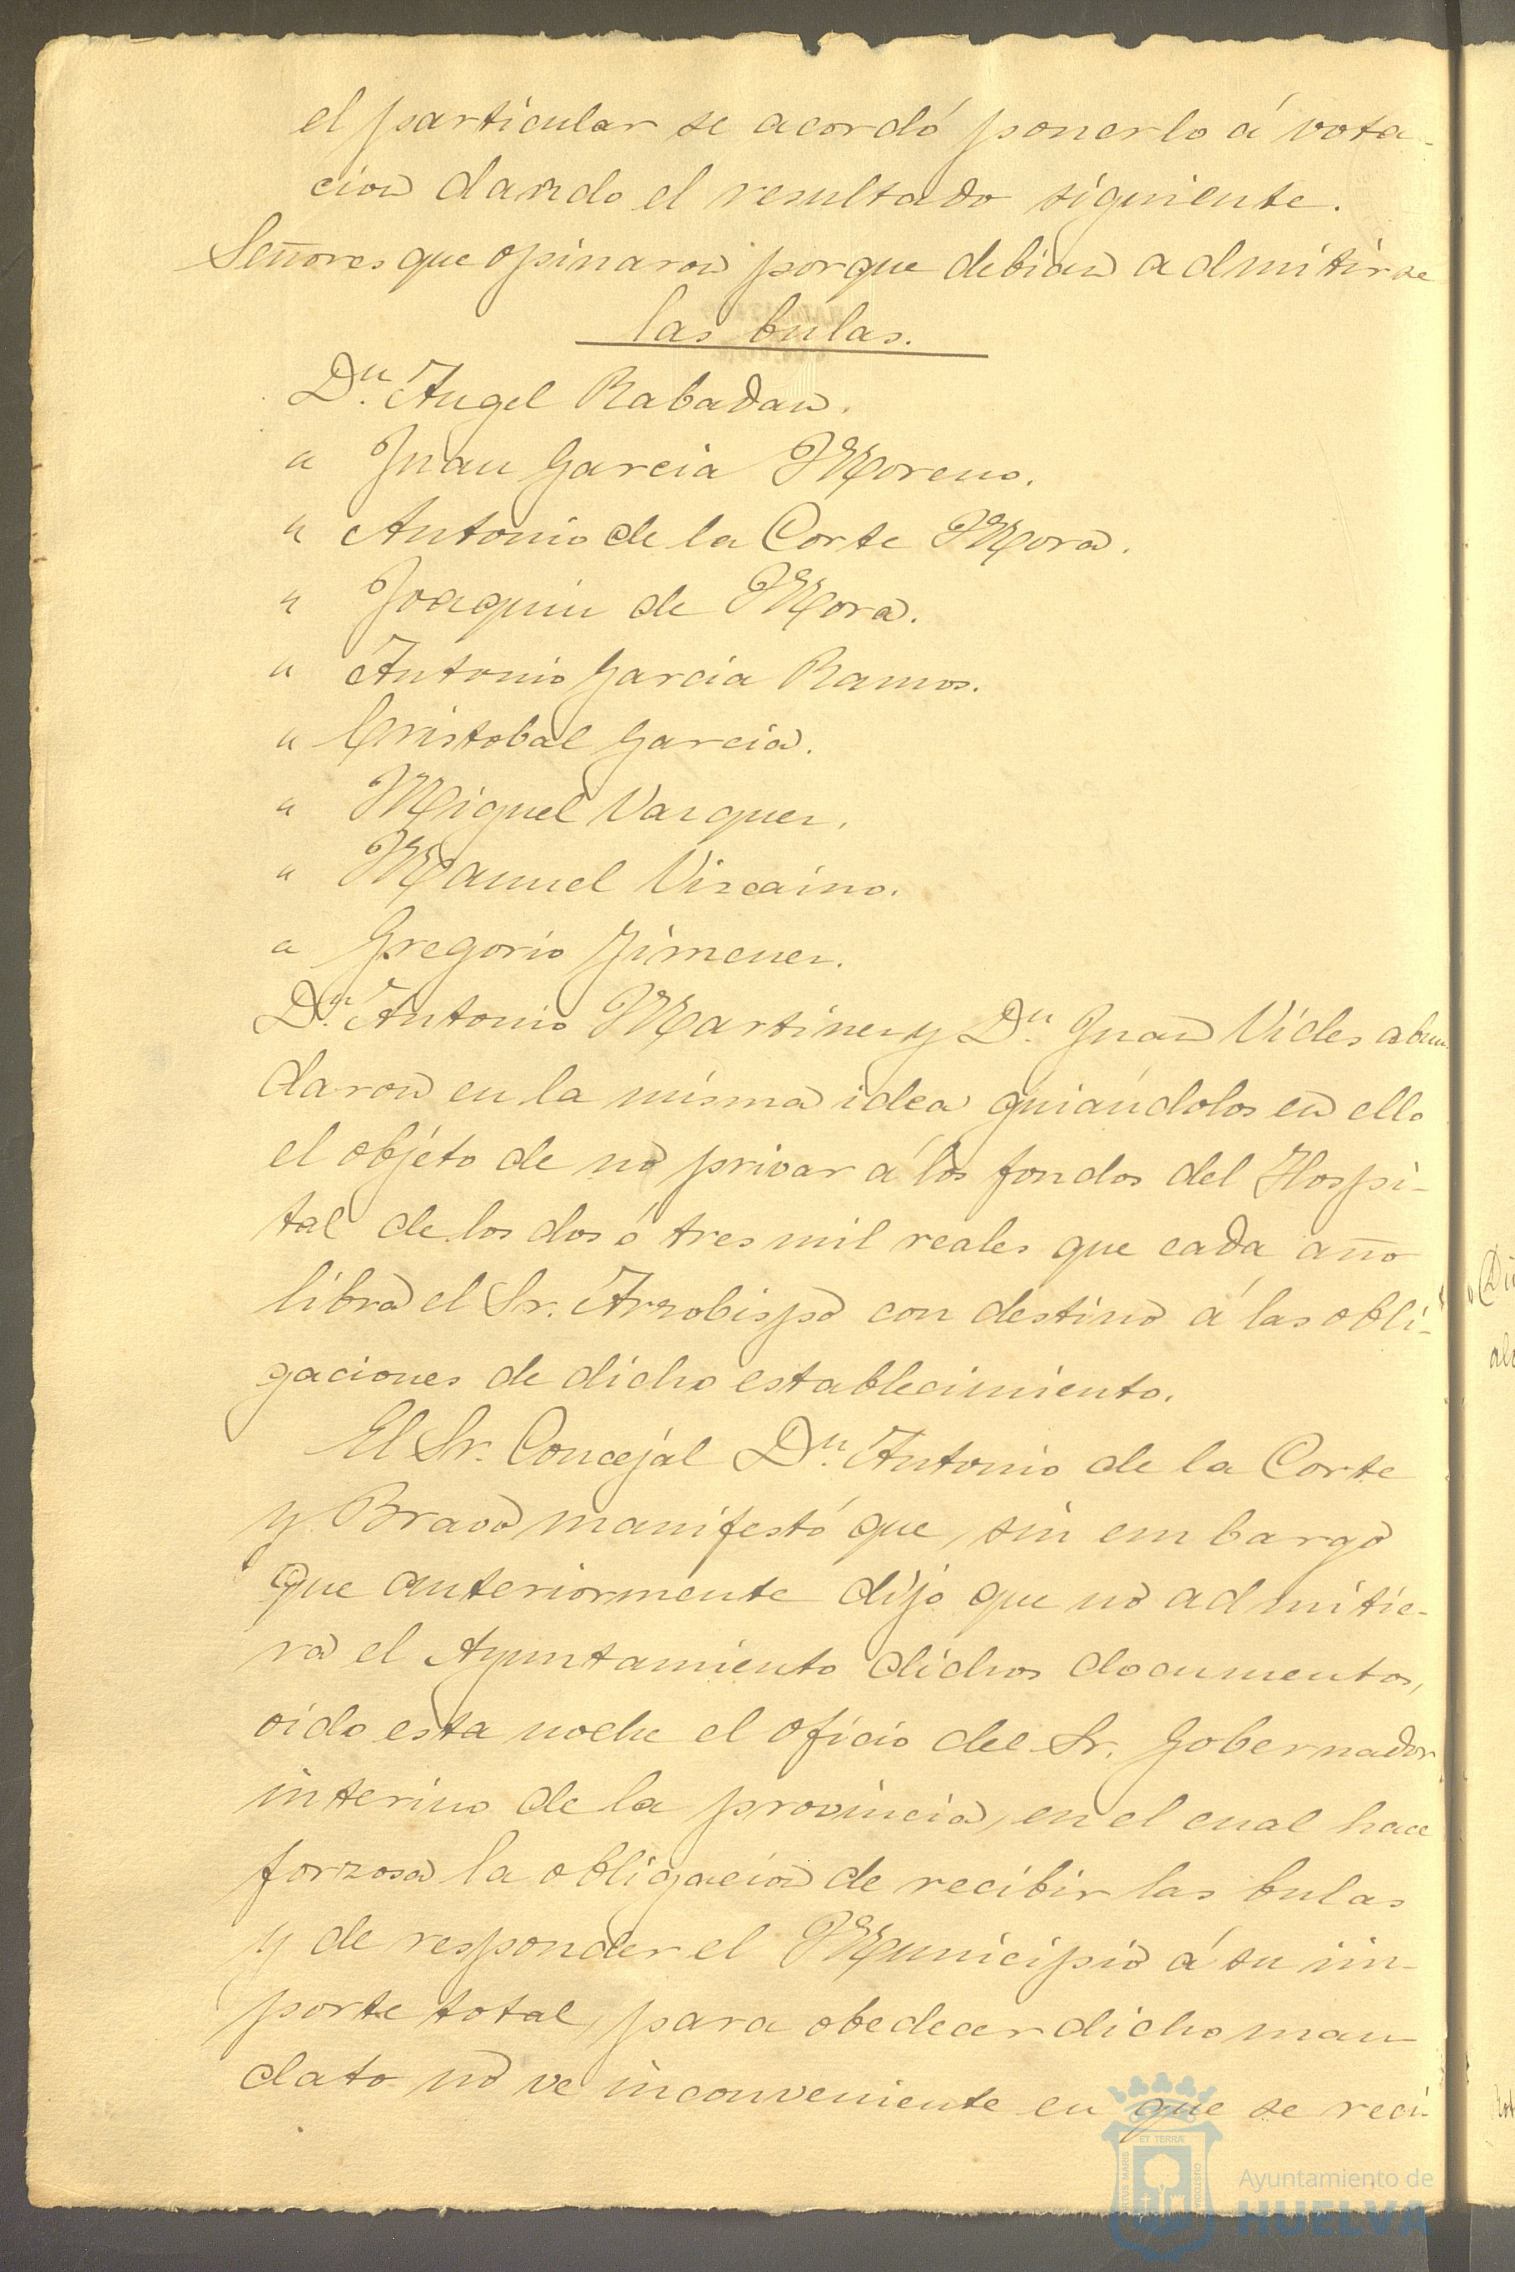 el particular se acordó ponerlo á vota-
cion dando el resultado siguiente.
Señores que opinaron porque debian admitirse
las bulas.
Dn. Angel Rabadan.
" Juan Garcia Moreno.
" Antonio de la Corte Mora.
" Joaquin de Mora.
" Antonio Garcia Ramos.
" Cristobal Garcia.
" Miguel Vazquez.
" Manuel Vizcaino.
" Gregorio Jimenez.
Dn. Antonio Martinez y Dn. Juan Vides abun-
daron en la misma idea guiándolos en ello
el objéto de no privar á los fondos del Hospi-
tal de los dos ó tres mil reales que cada año
libra el Sr. Arzobispo con destino á las obli-
gaciones de dicho establecimiento.
El Sr. Concejal Dn. Antonio de la Corte
y Bravo manifestó que, sin embargo
que anteriormente dijo que no admitie-
ra el Ayuntamiento dichos documentos,
oido esta noche el oficio del Sr. Gobernador
interino de la provincia, en el cual hace
forzosa la obligacion de recibir las bulas
y de responder el Municipio á su im-
porte total, para obedecer dicho man
dato no ve inconveniente en que se reci-
Ayuntamiento de
HUELVA